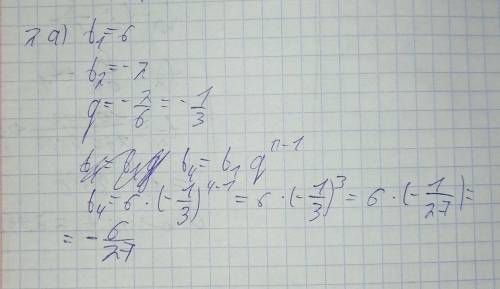 2 a) b₁=6
b₂=-2
q=-2/6=-1/3
b₄=b₁q^(n-1)
b₄=6·(-1/3)^(4-1)=6·(-1/3)^3=6·(-1/27)=
=-6/27